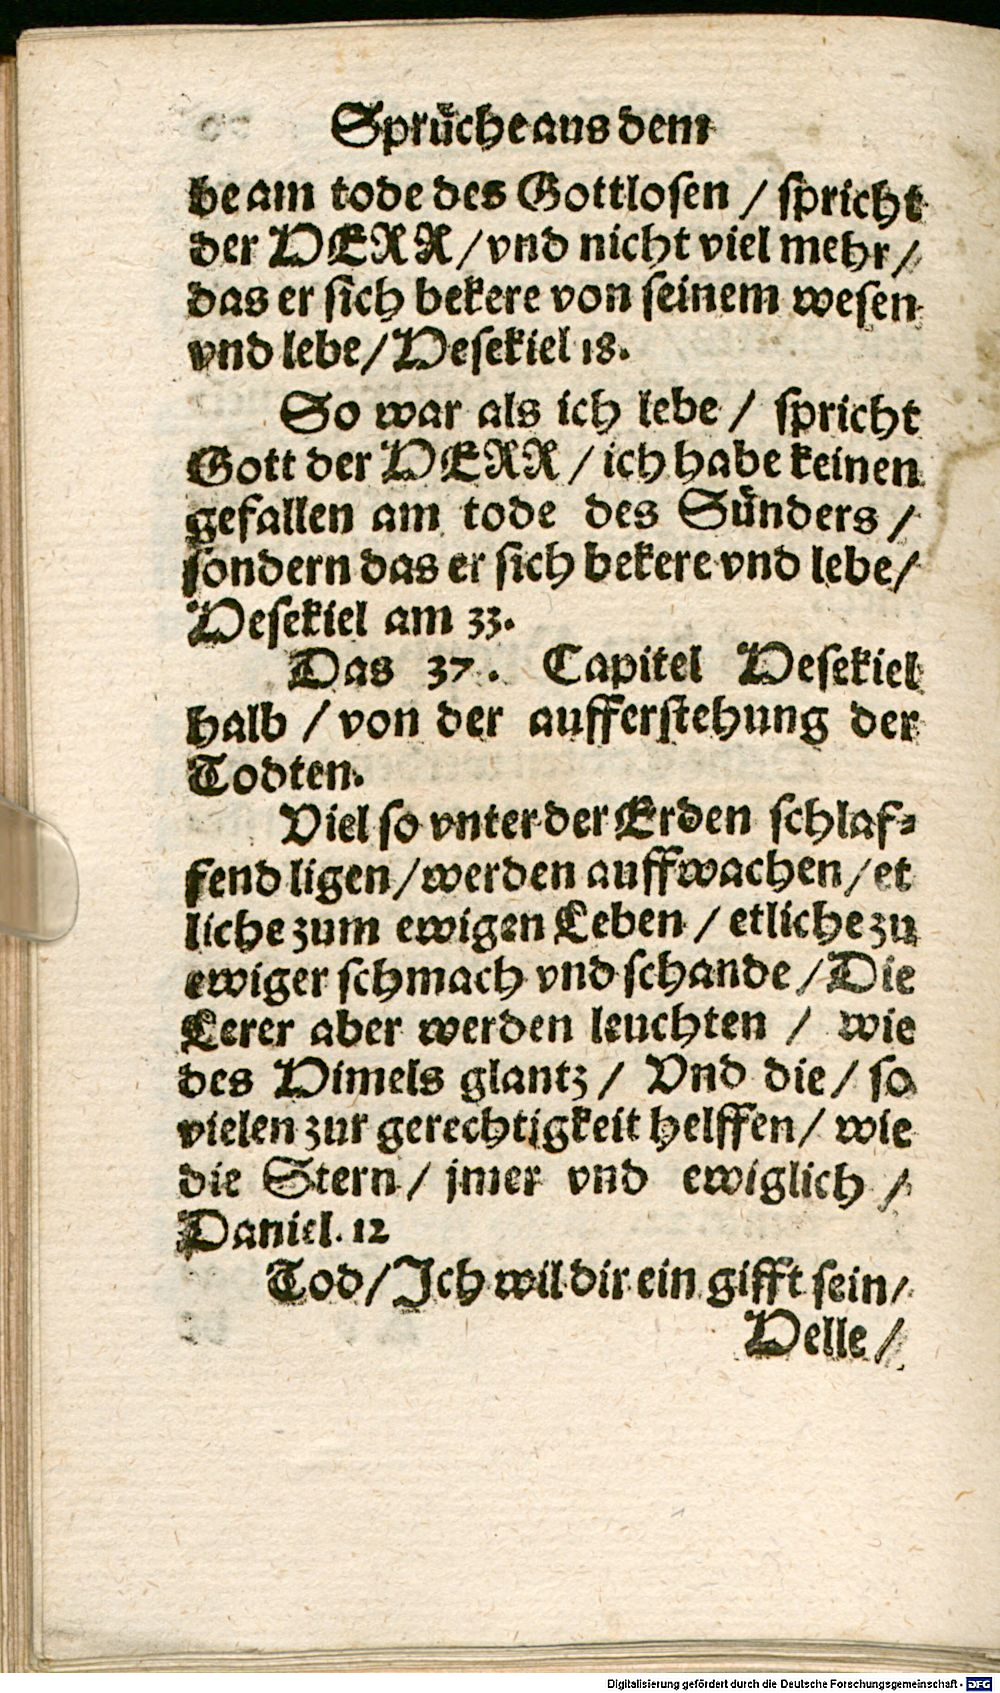 Sprüche aus dem
be am tode des Gottlosen / spricht
der HERR / vnd nicht viel mehr /
das er sich bekere von seinem wesen
vnd lebe / Hesekiel 18.
So war als ich lebe / spricht
Gott der HERR / ich habe keinen
gefallen am tode des Sünders /
sondern das er sich bekere vnd lebe /
Hesekiel am 33.
Das 37. Capitel Hesekiel
halb / von der aufferstehung der
Todten.
Viel so vnter der Erden schlaf⸗
fend ligen / werden auffwachen / et
liche zum ewigen Leben / etliche zu
ewiger schmach vnd schande / Die
Lerer aber werden leuchten / wie
des Himels glantz / Vnd die / so
vielen zur gerechtigkeit helffen / wie
die Stern / jmer vnd ewiglich /
Daniel. 12
Tod / Ich wil dir ein gifft sein /
Helle /
Digitalisierung gefördert durch die Deutsche Forschungsgemeinschaft - DFG